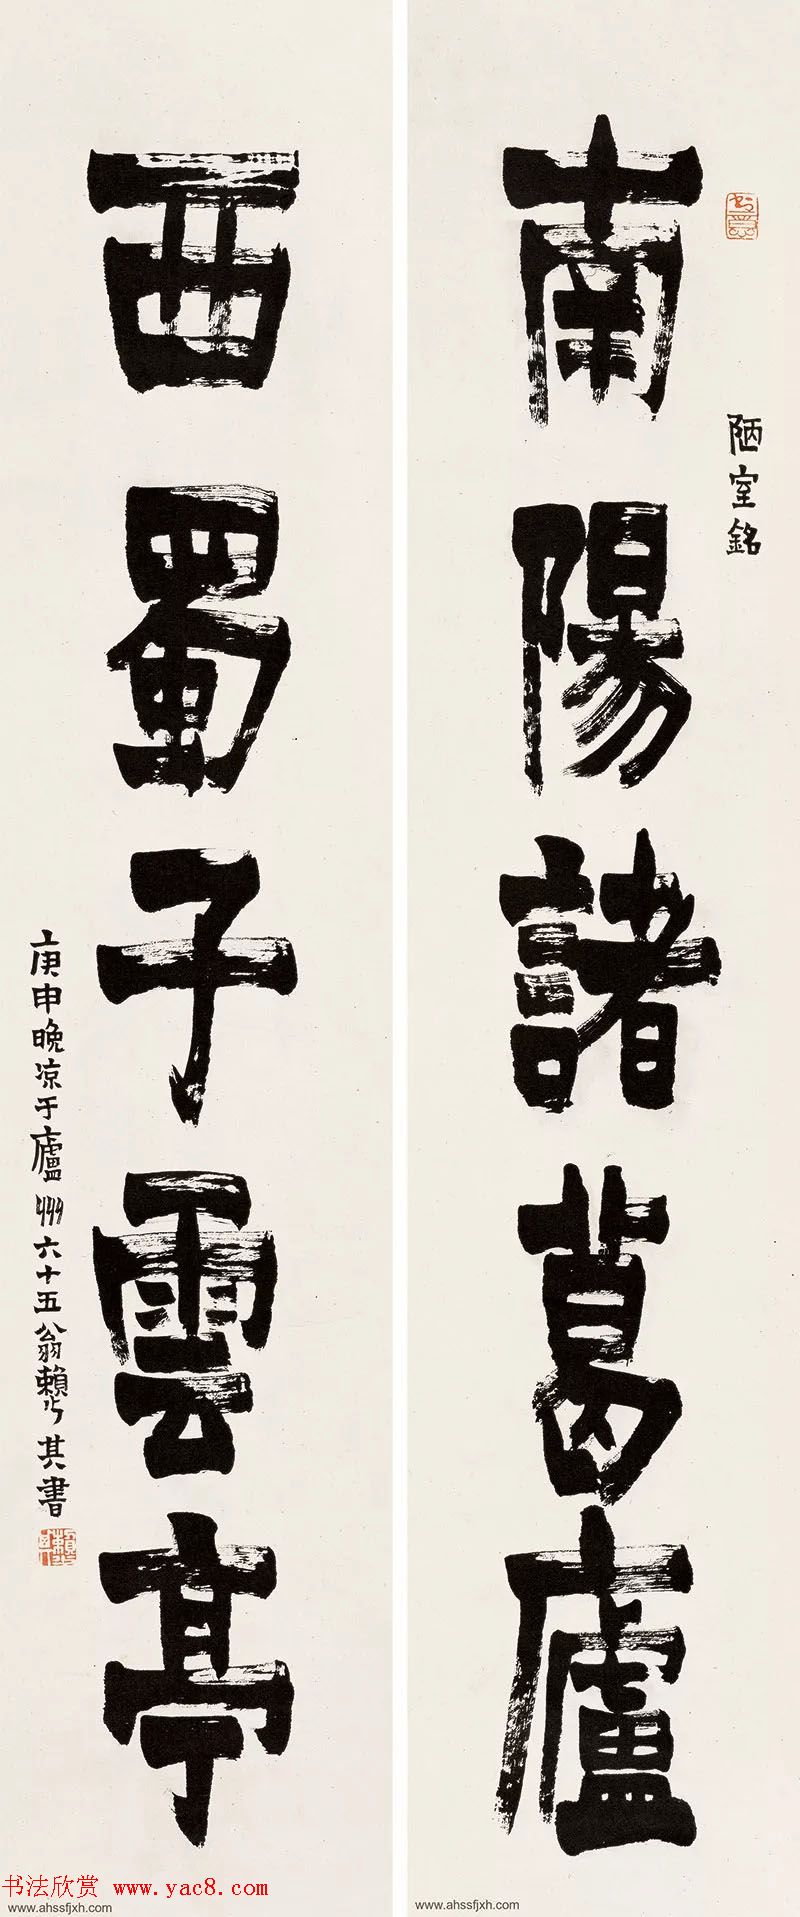 陋室銘
南陽諸葛廬
西蜀子雲亭
庚申晚凉于廬州六十五翁賴少其書
书法欣赏 www.yac8.com
www.ahssfjxh.com
www.ahssfjxh.com